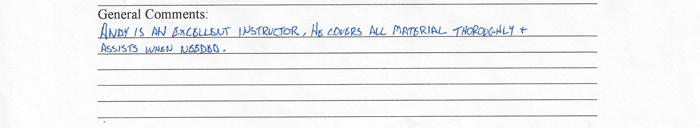 General Comments:
ANDY IS AN EXCELLENT INSTRUCTOR, HE COVERS ALL MATERIAL THOROUGHLY +
ASSISTS WHEN NEEDED.